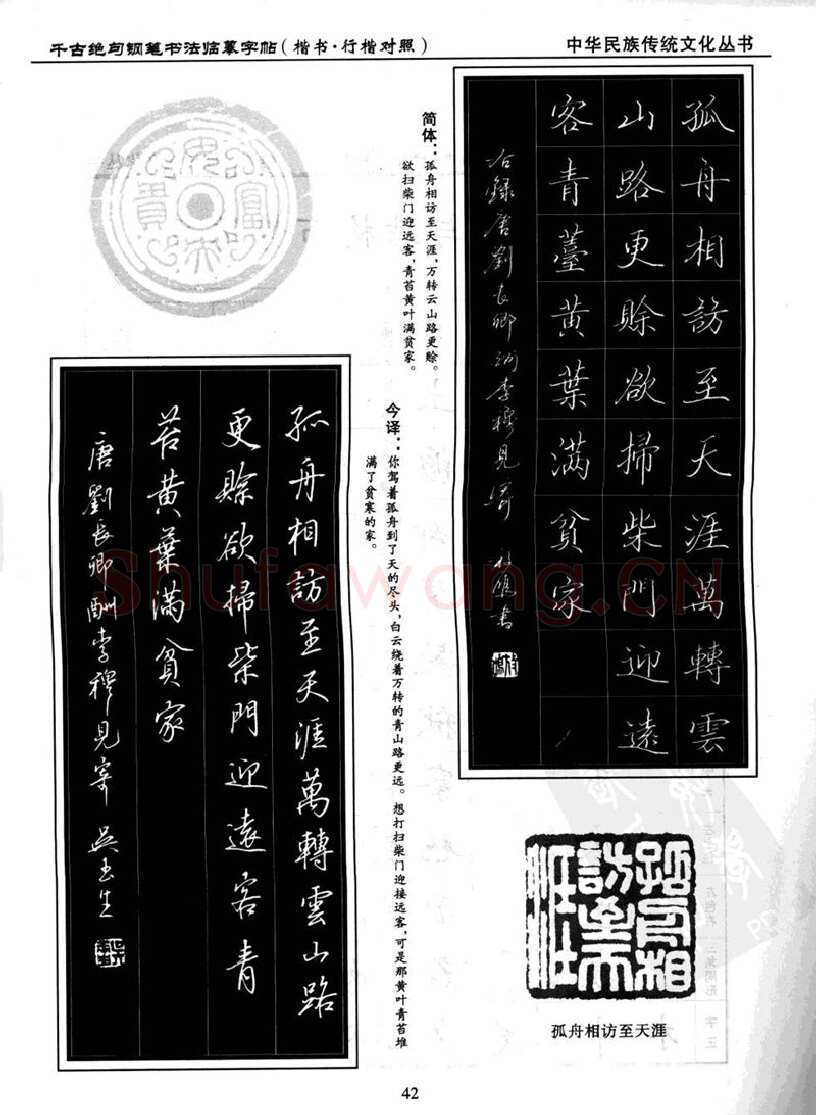 千古绝句钢笔书法临摹字帖(楷书·行楷对照)
中华民族传统文化丛书
孤舟相訪至天涯萬轉雲
山路更賖欲掃柴門迎遠
客青薹黄葉满貧家
右錄唐劉長卿酬李穆見寄 書
简体:孤舟相访至天涯,万转云山路更赊。
欲扫柴门迎远客,青苔黄叶满贫家。
今译:你驾着孤舟到了天的尽头,白云绕着万转的青山路更远。想打扫柴门迎接远客,可是那黄叶青苔堆
满了贫寒的家。
孤舟相訪至天涯萬轉雲山路
更賖欲掃柴門迎遠客青
苔黄葉满貧家
唐劉長卿酬李穆見寄 吴玉生
孤舟相
訪至天
涯
孤舟相访至天涯
42
Shufawang.CN